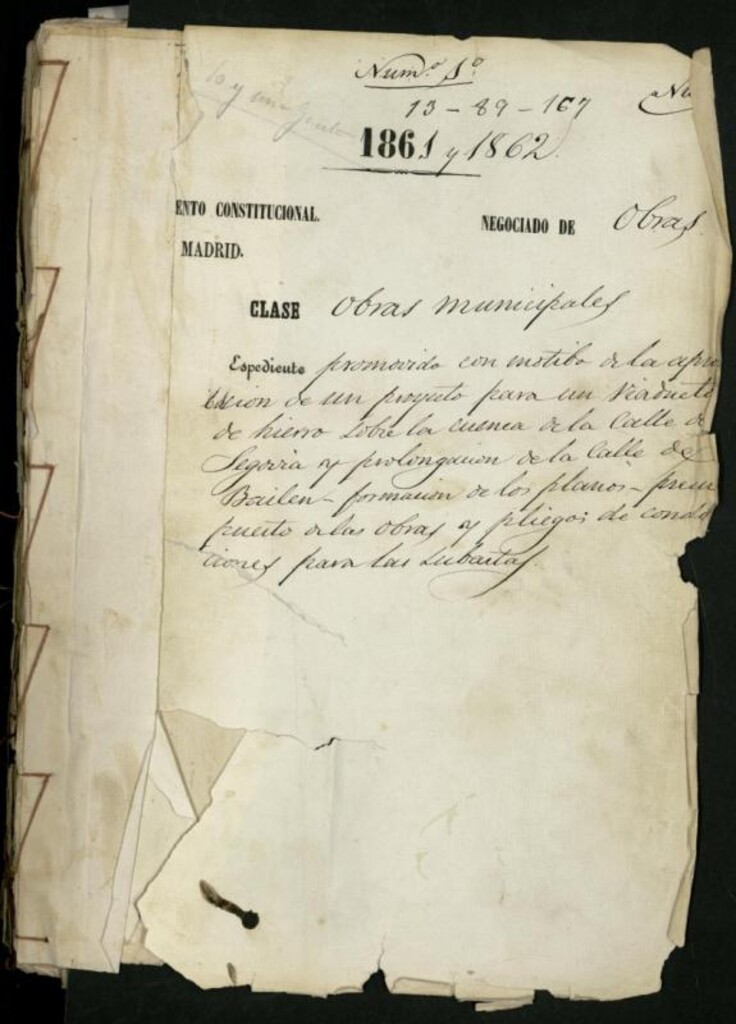 Num.º 1º
Nu
13-89-167
1861 y 1862.
ENTO CONSTITUCIONAL.
MADRID.
NEGOCIADO DE Obras.
CLASE Obras municipales
Espediente promovido con motibo de la apro
bacion de un proyecto para un Viaducto
de hierro sobre la cuenca de la Calle de
Segovia y prolongacion de la Calle de
Bailen - formacion de los planos - presu
puesto de las obras y pliegos de condi
ciones para las subastas.